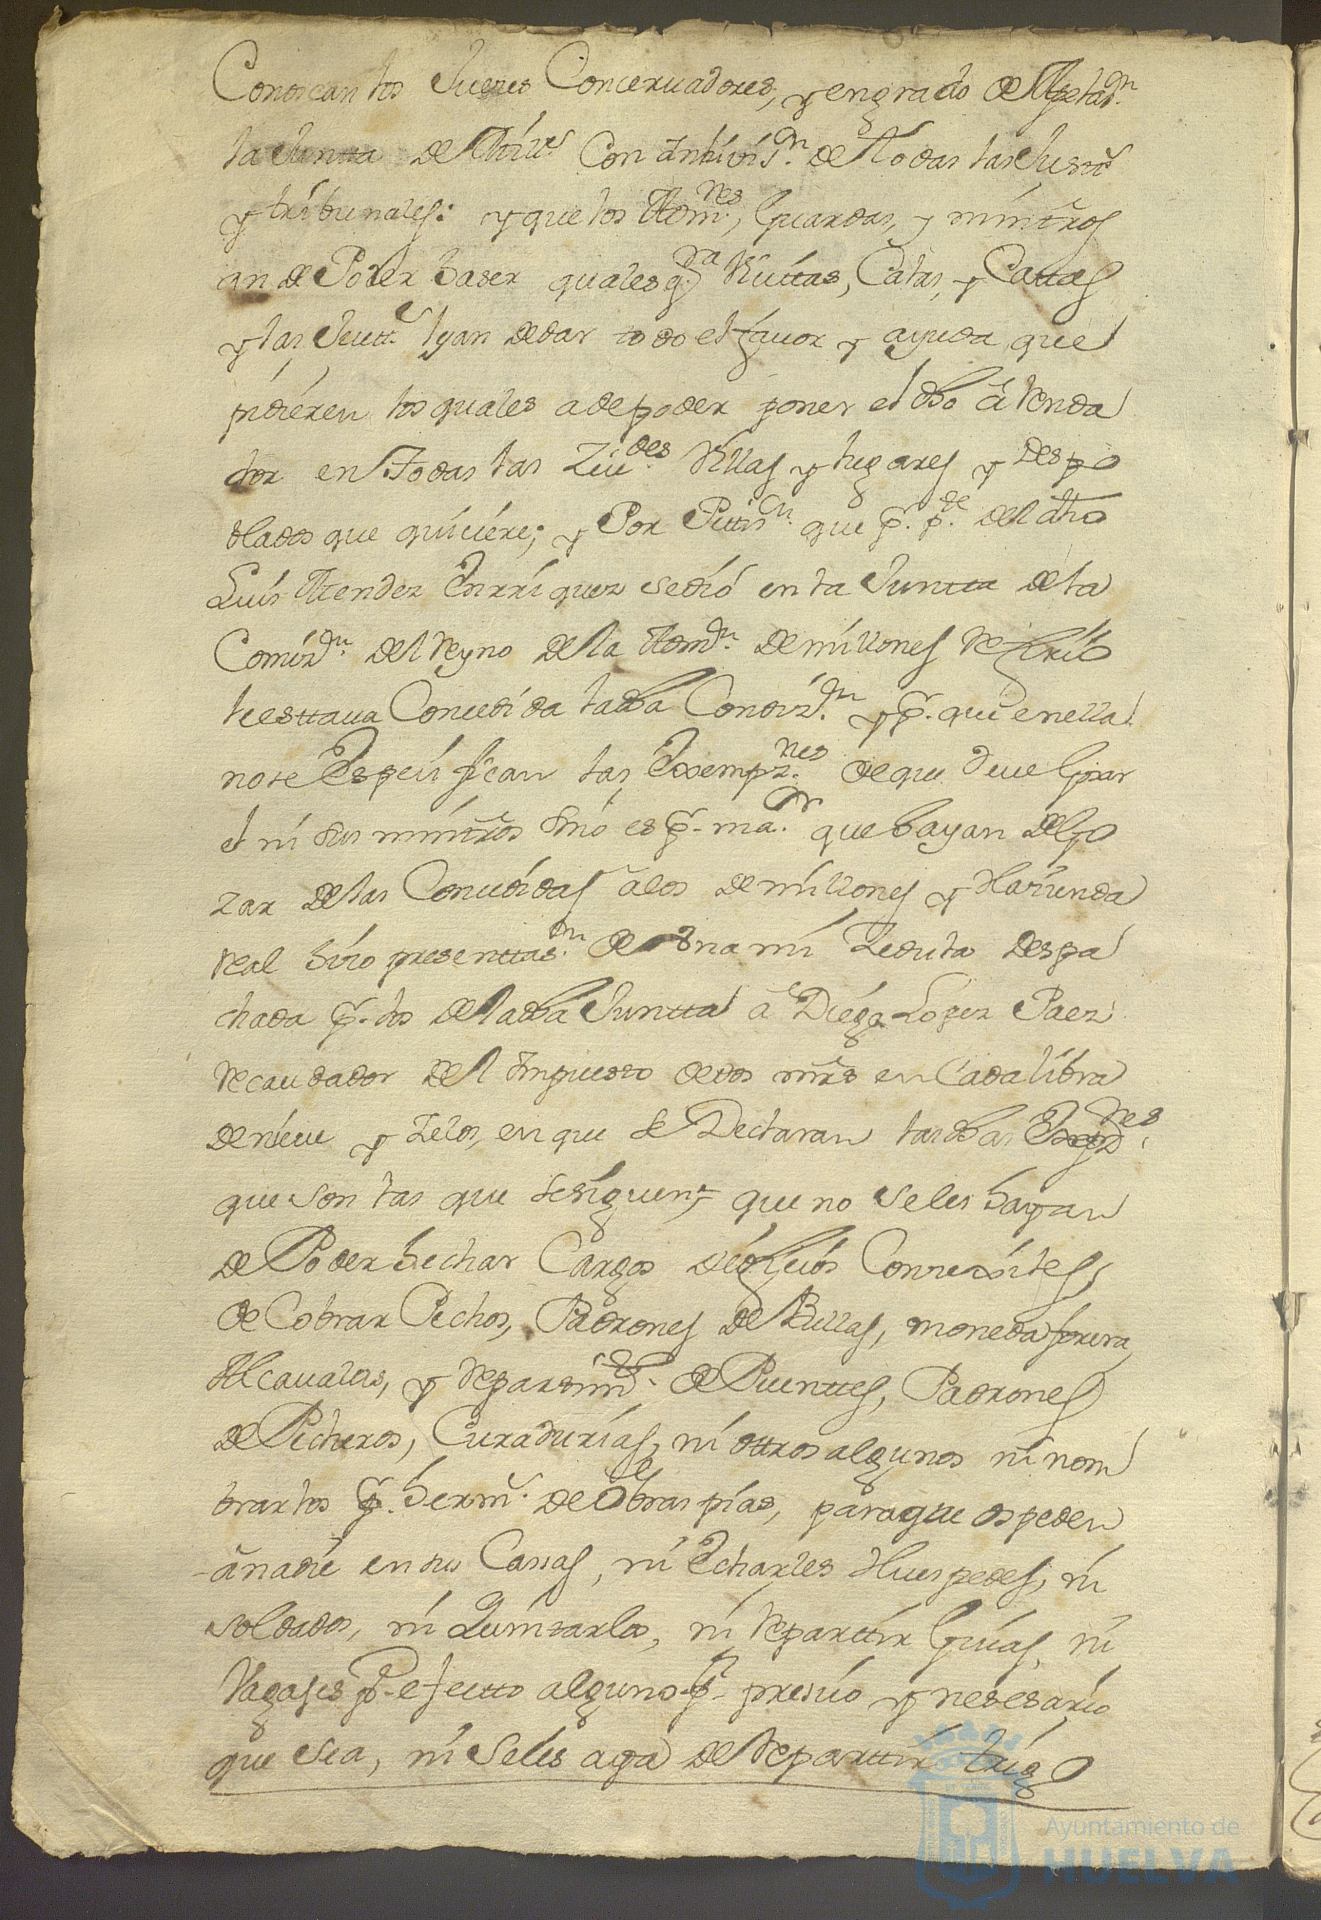 Conoscan los Jueces Concervadores, y en grado de Apelas.on
la Junta de Mill.s con Inhivis.on de todas las Just.s
y tribunales: y que los Adm.res, Guardas, y ministros
an de Poder haser qualesq.ra Vicitas, Catas, y Cattas
y las Justt.s le an de dar todo el favor y ayuda que
pidieren los quales a de poder poner el dho arrenda
dor en Todas las Ziu.des Villas y lugares y despo
blados que quiciere; y Por Petis.on que p.r p.te del dho
Luis Mendez Enrriquez se dió en la Juntta de la
Comiz.on del Reyno de la Adm.on de millones refirio
le esttava Concedida la dha Condiz.on y p.r que en ella
no se Especifican las Exempz.nes de que deve Gozar
el ni sus ministros sino es p.r ma.or que hayan de go
zar de las Concedidas a los de millones y Hacienda
real hizo presenttas.on de una mi Zedula despa
chada p.r los de la dha Juntta a Diego Lopez Paez
recaudador del Impuesto de dos mrs en Cada libra
de nieve y Zelos, en que se Declaran las dhas Exempz.nes
que son las que se siguen; que no se les hayan
de Poder hechar Cargos de ofícios Concexiles,
de Cobrar Pechos, Padrones de Bullas, moneda forera,
Alcavalas, y repartim.to de Puenttes, Padrones
de Pecheros, Curadurias, ni ottros algunos ni nom
brarlos p.r herm.s de Obras pias, para que ospeden
a nadie en sus Cassas, ni Echarles Huespedes, ni
soldados, ni Quintarlos, ni reparttir Guias, ni
Vagajes p.a efectto alguno p.r presiso y nesesario
que sea, ni se les aga de reparttir trigo
Ayuntamiento de
HUELVA